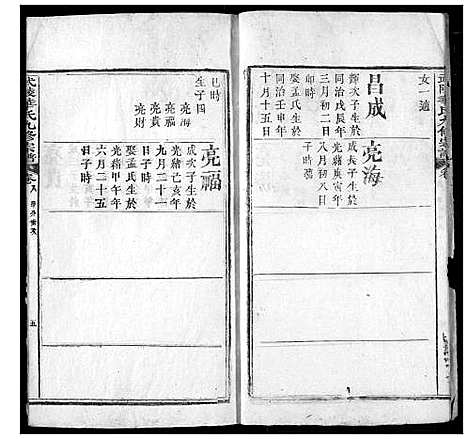 女一適
昌成
輝次子生於
同治戊辰年
三月初二日
卯時
娶孟氏生於
同治壬申年
十月十五日
亮海
成長子生於
光緒庚寅年
八月初八日
巳時
生子四
亮海
亮福
亮貴
亮財
亮福
成次子生於
光緒己亥年
九月二十一
日子時
娶孟氏生於
光緒甲午年
六月二十五
日子時
武陵華氏九修宗譜
卷八
五